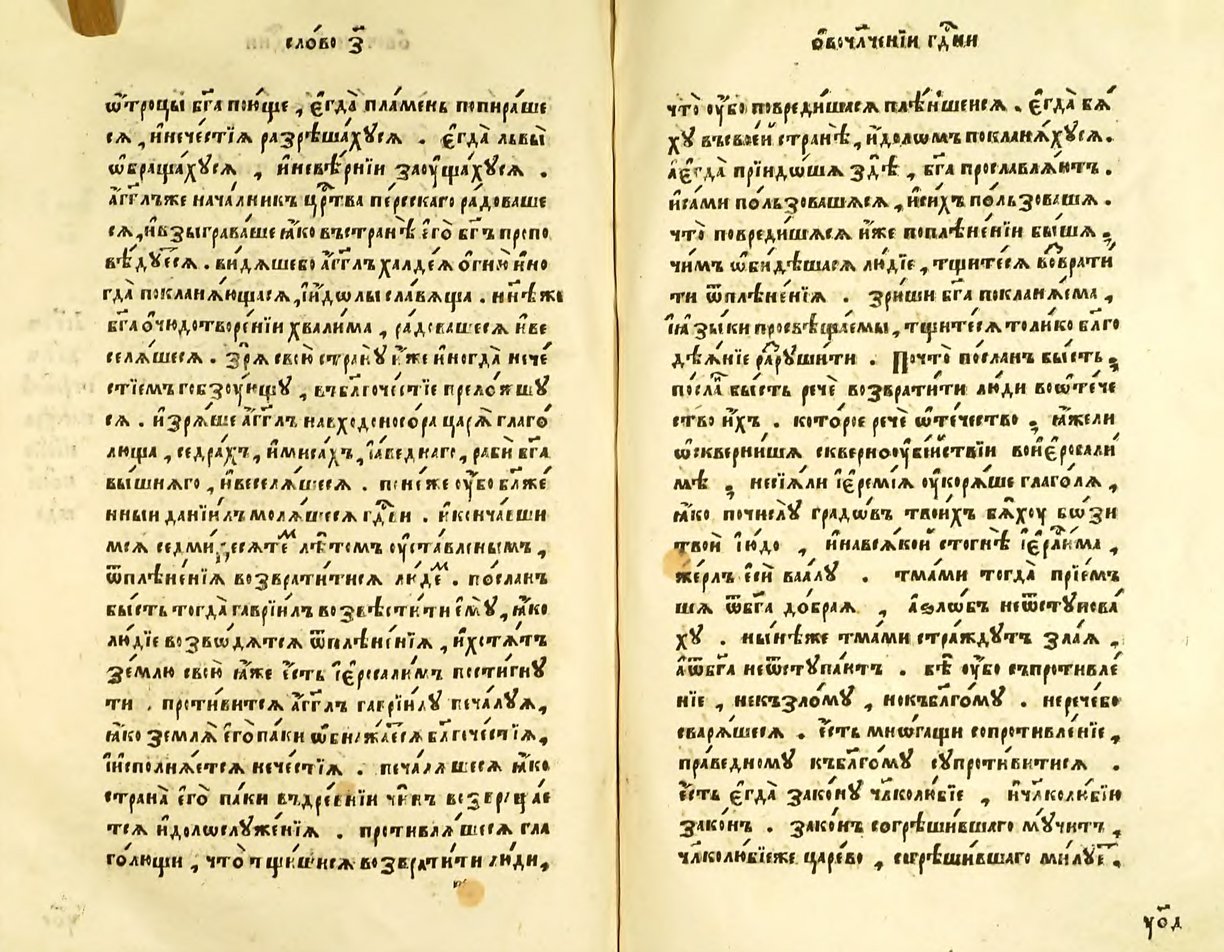 сло́во з҃
ѿтроцы бг҃а пою́ще , є҆гда̀ пла́мень попира́ше
сѧ , и҆нечестїѧ разрѣша́хꙋсѧ . є҆гда̀ львы̀
ѡ҆браща́хꙋсѧ , и҆невѣ́рнїи заоуща́хꙋсѧ .
а҆гг҃лъже нача́лникъ црⷭ҇тва пе́рсскаго ра́доваше
сѧ , и҆взыгра́ваше ꙗ҆́ко въстранѣ̀ є҆гѡ̀ бг҃ъ пропо
вѣ́дꙋесѧ . ви́дѧшебо а҆гг҃лъ халде́ѧ ѻ҆гню̀ и҆но
гда̀ покланѧ́ющасѧ , и҆і҆́дѡлы сла́вѧща . нн҃ѣже
бг҃а ѡ҆чюдотворе́нїи хвали́ма , ра́довашесѧ и҆ве
селѧ́шесѧ . зрѧ̀ свою̀ странꙋ̀ и҆́же и҆ногда̀ нече́
стїемъ гобзоу́ющꙋ , въблгоче́стїе прело́жшꙋ
сѧ . и҆зрѧ́ше а҆гг҃лъ навходоносо́ра царѧ̀ глаго́
люща , седра́хъ , и҆миса́хъ , і҆а҆веднаго , рабѝ бг҃а
вы́шнѧго , и҆веселѧ́шесѧ . поне́же оу҆́бо бл҃же́
нныи данїи́лъ молѧ́шесѧ гдⷭ҇еви . и҆сконча́вши
мсѧ седми́десѧтеⷨ лѣ́томъ оу҆ста́вленымъ ,
ѿплѣне́нїѧ возврати́тисѧ лю́деⷨ . по́сланъ
бы́сть тогда̀ гаврїи́лъ возвѣсти́ти є҆мꙋ̀ , ꙗ҆́ко
лю́дїе возвѡ́дѧтсѧ ѿплѣне́нїѧ , и҆хотѧ́тъ
зе́млю свою̀ ꙗ҆́же є҆́сть і҆є҆росали́мъ пости́гнꙋ
ти . проти́витсѧ а҆гг҃лъ гаврїи́лꙋ печа́лꙋѧ ,
ꙗ҆́ко землѧ̀ є҆гѡ̀ па́ки ѡ҆бнажа́есѧ блгоче́стїѧ ,
и҆и҆сполнѧ́етсѧ нече́стїѧ . печа́лѧшесѧ ꙗ҆́ко
страна̀ є҆гѡ̀ па́ки въдре́внїи чи́нъ возвраща́е
тсѧ и҆долослꙋже́нїѧ . противлѧ́шесѧ гла
го́лющи , что̀ тщи́шисѧ возврати́ти лю́ди ,
ѡ҆вочл҃че́нїи гдⷭ҇ни
что̀ оу҆́бо повреди́шасѧ плѣ́ншеисѧ . є҆гда̀ бѧ́
хꙋ въсвое́й странѣ̀ , и҆́долѡмъ покланѧ́хꙋсѧ .
а҆є҆гда̀ прїидо́шѧ здѣ̀ , бг҃а прославлѧ́ютъ .
и҆са́ми по́льзовашѧсѧ , и҆и҆ни́хъ по́льзовашѧ .
что̀ повреди́шѧсѧ и҆́же поплѣне́нїи бы́шѧ ;
чи́мъ ѡ҆би́дѣшасѧ лю́дїе , тщи́тесѧ возврати́
ти ѿплѣне́нїѧ . зри́ши бг҃а покланѧ́ема ,
і҆ꙗ҆зы́ки просвѣща́емы , тщи́тесѧ толи́ко блго
дѣѧ́нїе разрꙋши́ти . Почто̀ по́сланъ бы́сть ;
по́сланъ бы́сть речѐ возврати́ти лю́ди воѡ҆те́че
ство и҆́хъ . кото́рое речѐ ѡ҆те́чество ; ꙗ҆́жели
ѡ҆скверни́шѧ скве́рноубїи́ствїи вои҆є҆росали́
мѣ ; неси́ѧли і҆є҆ремі́ѧ оу҆корѧ́ше глаго́лѧ ,
ꙗ҆́ко почислꙋ̀ градо́въ твои́хъ бѧ́хоу бо́зи
твоѝ і҆ю́до , и҆навсѧ́кой сто́гнѣ і҆є҆рⷭ҇ли́ма ,
же́рлъ є҆сѝ ваа́лꙋ . тма́ми тогда̀ прїе́мъ
шѧ ѿбг҃а до́браѧ , а҆ѕлѡ́бъ неѿстꙋпова́
хꙋ . ны́нѣже тма́ми стра́ждꙋтъ зла́ѧ ,
а҆ѿбг҃а неѿстꙋпа́ютъ . бѣ̀ оу҆́бо съпротивле́
нїе , некъзло́мꙋ , нокъблго́мꙋ . нерече́бо
сварѧ́шесѧ . є҆́сть мно́гащи сопротивле́нїе ,
пра́ведномꙋ къблго́мꙋ сꙋпроти́витисѧ .
є҆́сть є҆гда̀ зако́нꙋ чл҃колю́бїе , и҆чл҃колю́бїю
зако́нъ . зако́нъ согрѣши́вшаго мꙋ́читъ ,
чл҃колю́бїеже царе́во , согрѣши́вшаго ми́лꙋе .
уо҃д